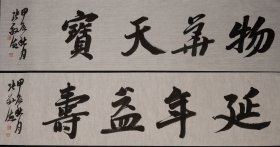 物華天寶
甲辰秋月
延年益壽
甲辰秋月